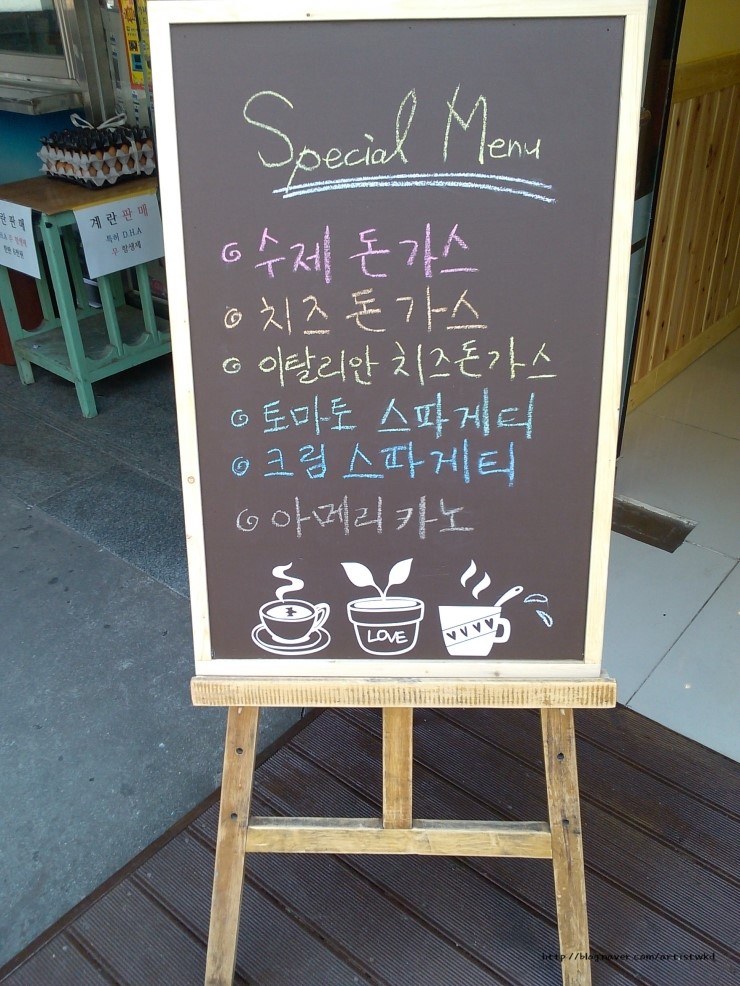 Special Menu
수제 돈가스
치즈 돈가스
이탈리안 치즈돈가스
토마토 스파게디
크림 스파게티
아메리카노
LOVE
계란 판매
특허 D.H.A
무 항생제
란판매
http://blog.naver.com/artistwkd